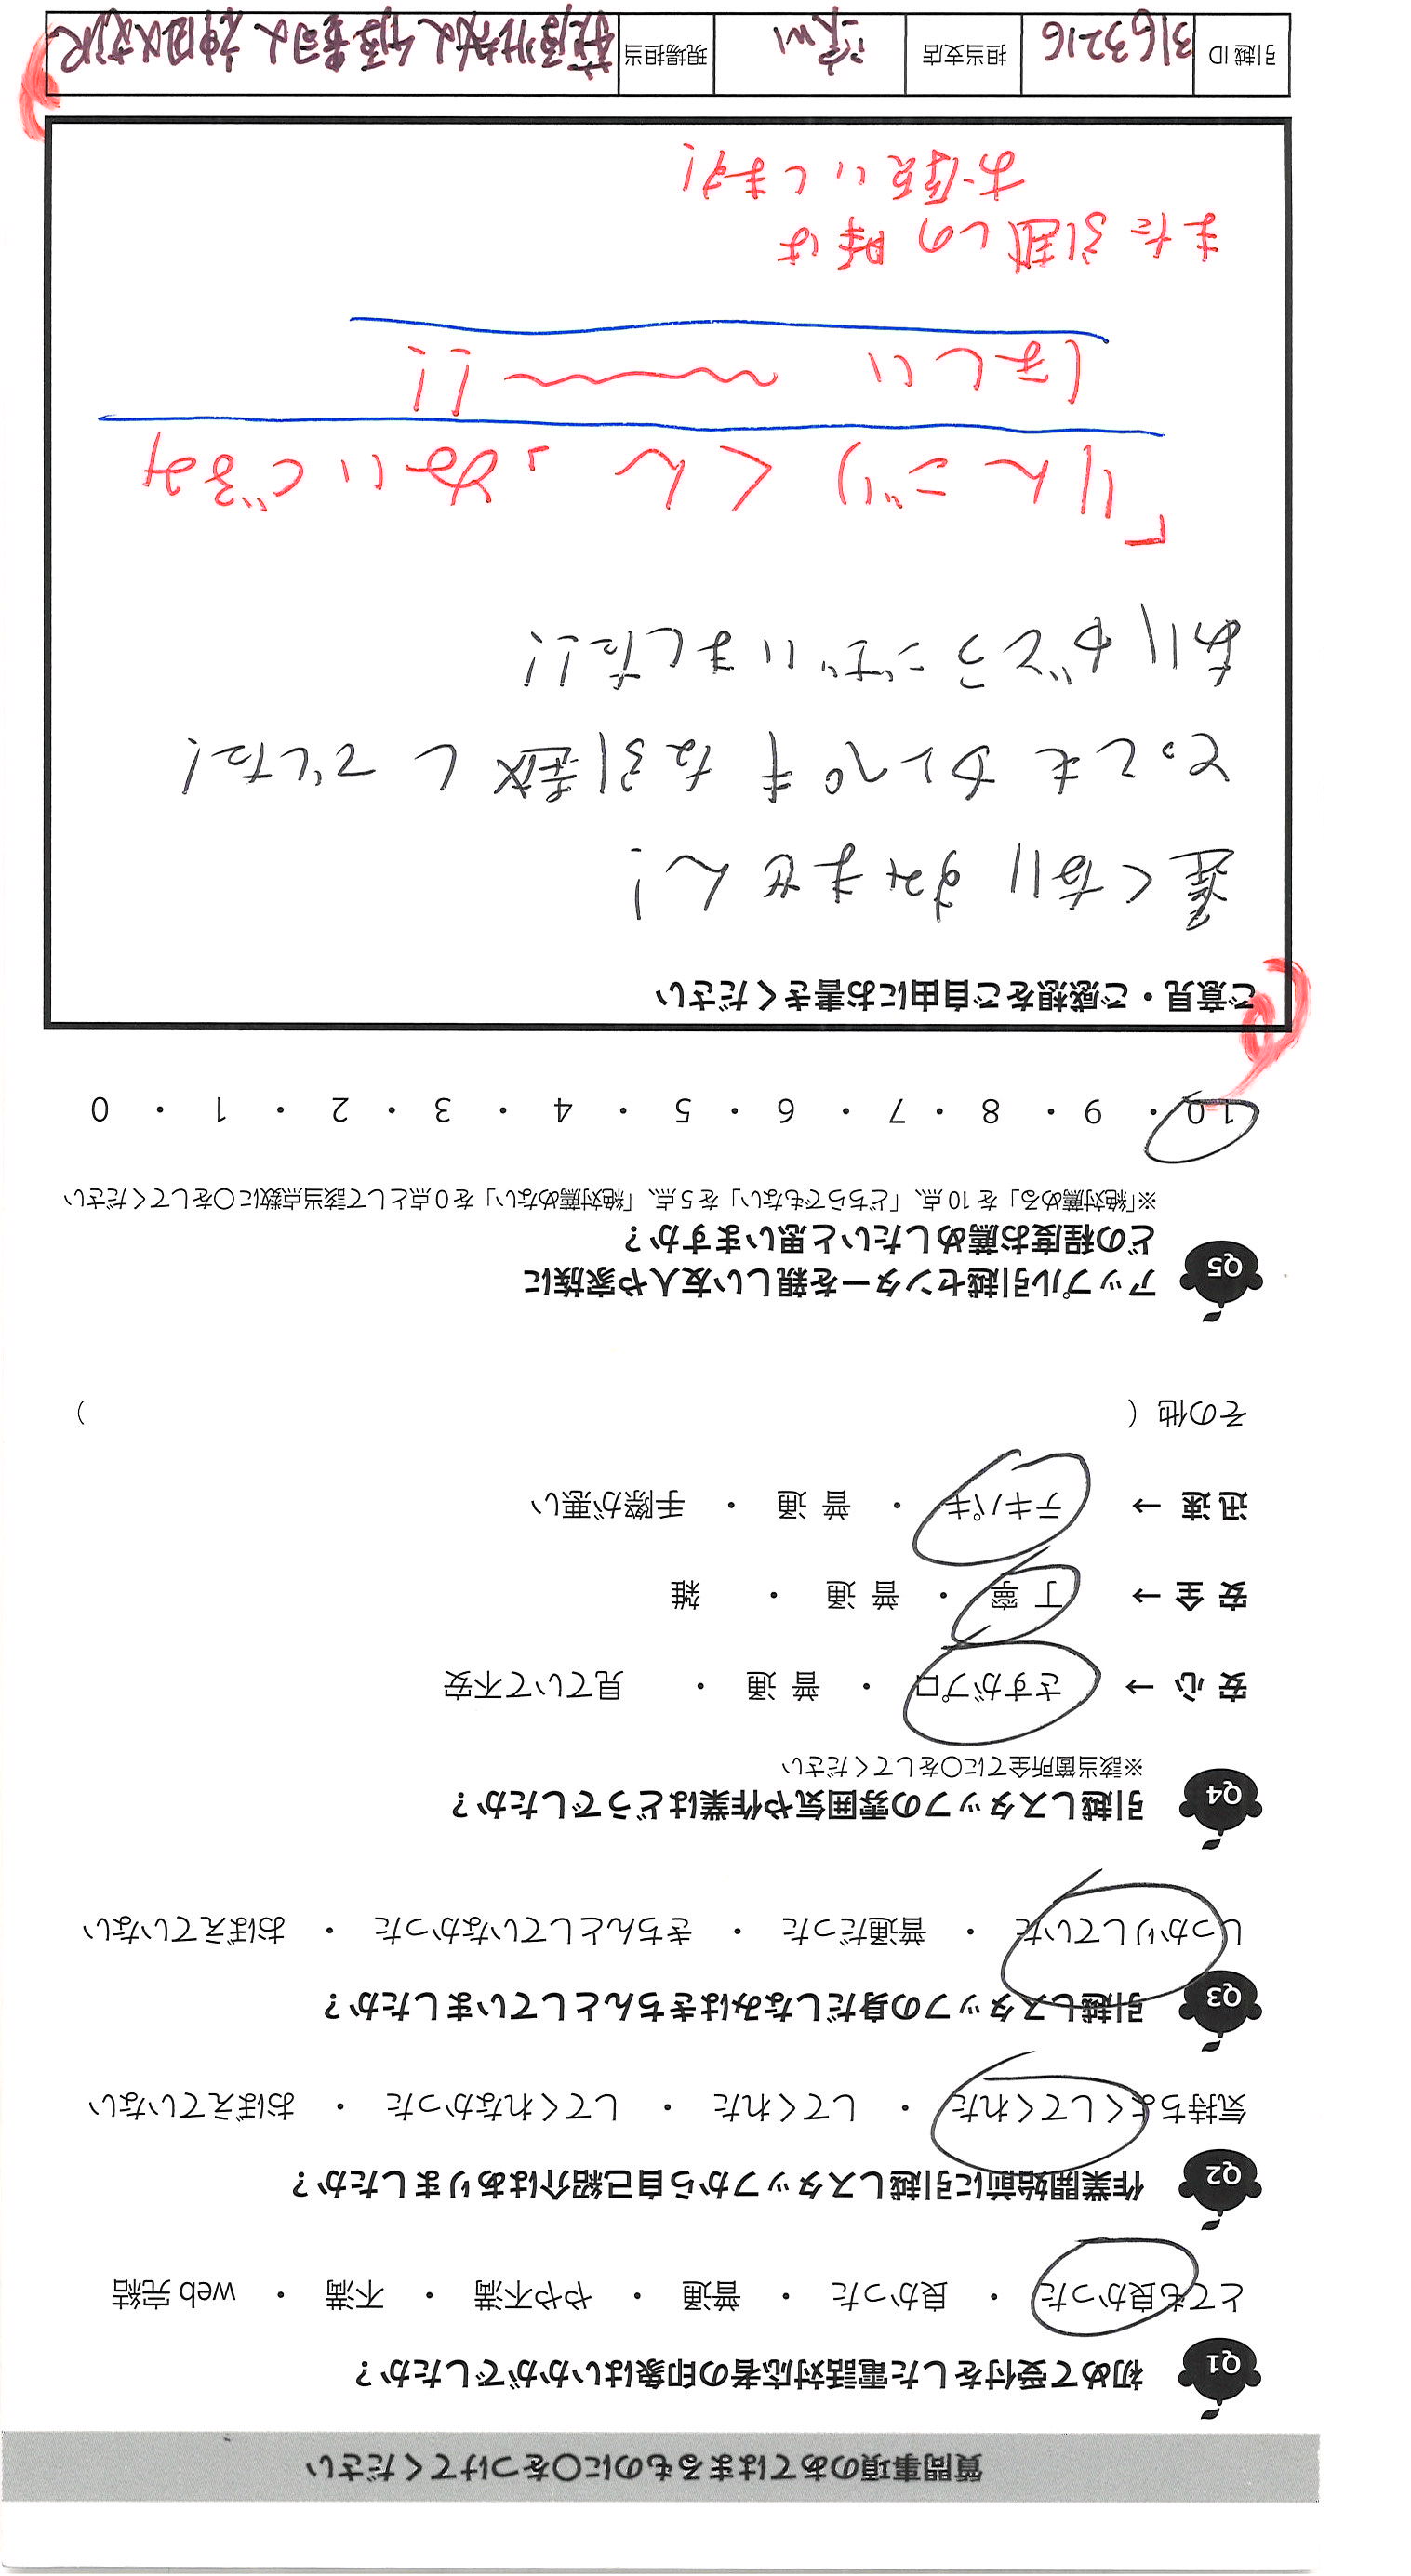 質問事項のあてはまるものに○をつけてください
Q1 初めて受付をした電話対応者の印象はいかがでしたか？
とても良かった ・ 良かった ・ 普通 ・ やや不満 ・ 不満 ・ web 完結
Q2 作業開始前に引越しスタッフから自己紹介はありましたか？
気持ちよくしてくれた ・ してくれた ・ してくれなかった ・ おぼえていない
Q3 引越しスタッフの身だしなみはきちんとしていましたか？
しっかりしていた ・ 普通だった ・ きちんとしていなかった ・ おぼえていない
Q4 引越しスタッフの雰囲気や作業はどうでしたか？
※該当箇所全てに○をしてください
安 心 → さすがプロ ・ 普 通 ・ 見ていて不安
安 全 → 丁 寧 ・ 普 通 ・ 雑
迅 速 → テキパキ ・ 普 通 ・ 手際が悪い
その他（ ）
Q5 アップル引越センターを親しい友人や家族に
どの程度お薦めしたいと思いますか？
※「絶対薦める」を 10 点、「どちらでもない」を 5 点、「絶対薦めない」を 0 点として該当点数に○をしてください
10 ・ 9 ・ 8 ・ 7 ・ 6 ・ 5 ・ 4 ・ 3 ・ 2 ・ 1 ・ 0
ご意見・ご感想をご自由にお書きください
遅くなり すみません！
とっても カンペキ な引越し でした！
ありがとうございました！！
「りんご」くん 、ぬいぐるみ
ほしい 〜〜〜 !!
また引越しの時は
お願いします！
引越 ID 3163216 担当支店 現場担当